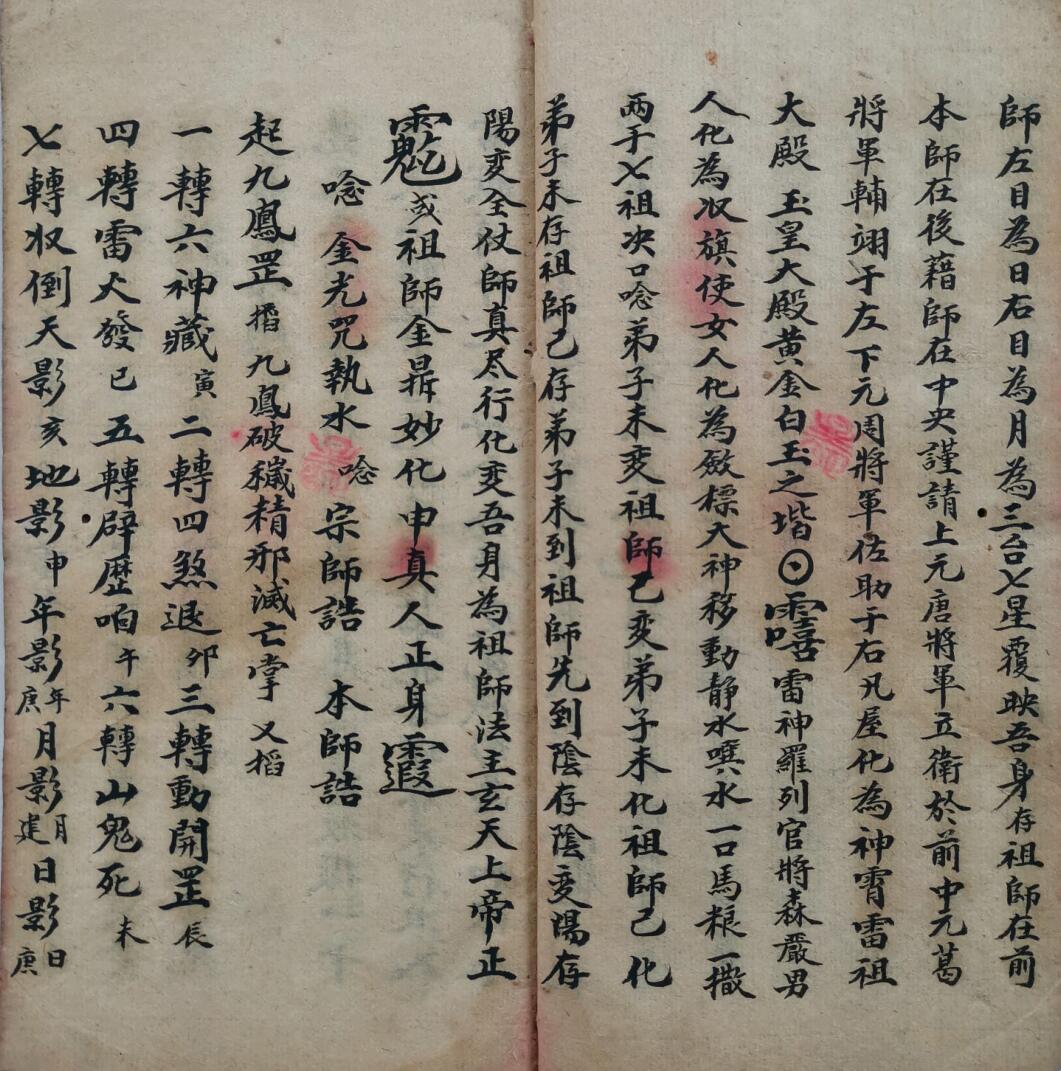 師左目為日右目為月為三台七星覆映吾身存祖師在前
本師在後藉師在中央謹請上元唐將軍立衛於前中元葛
將軍輔翊于左下元周將軍佐助于右凡屋化為神霄雷祖
大殿 玉皇大殿黃金白玉之堦雷神羅列官將森嚴男
人化為収旗使女人化為啟標大神移動静水噀水一口馬粮一撒
兩手七祖决口唸弟子未变祖師已变弟子未化祖師已化
弟子未存祖師已存弟子未到祖師先到陰存陰变陽存
陽变全仗師真尽行化变吾身為祖師法主玄天上帝正
或祖師金鼎妙化申真人正身霞
唸 金光咒執水 唸 宗師誥 本師誥
起九鳳罡搯九鳳破穢精邪滅亡掌 又搯
一轉六神藏寅二轉四煞退卯三轉動開罡辰
四轉雷火發巳五轉辟歷响午六轉山鬼死未
七轉収倒天影亥地影申年影年庚月影月建日影日庚